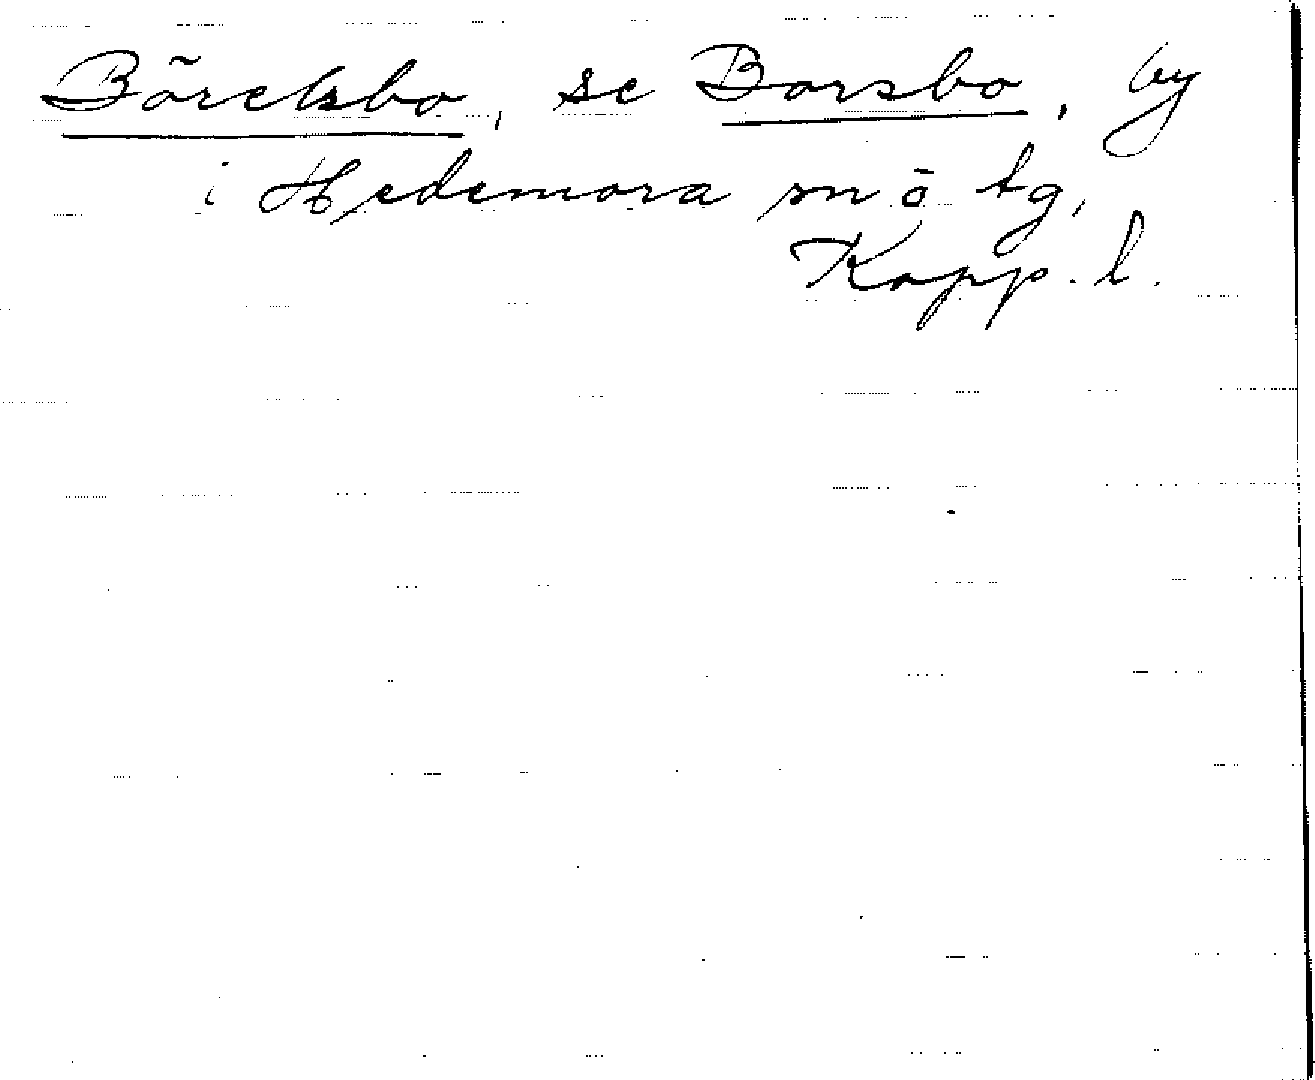 Börelsbo, se Borsbo, by
i Hedemora sn o tg,
Kopp. l.